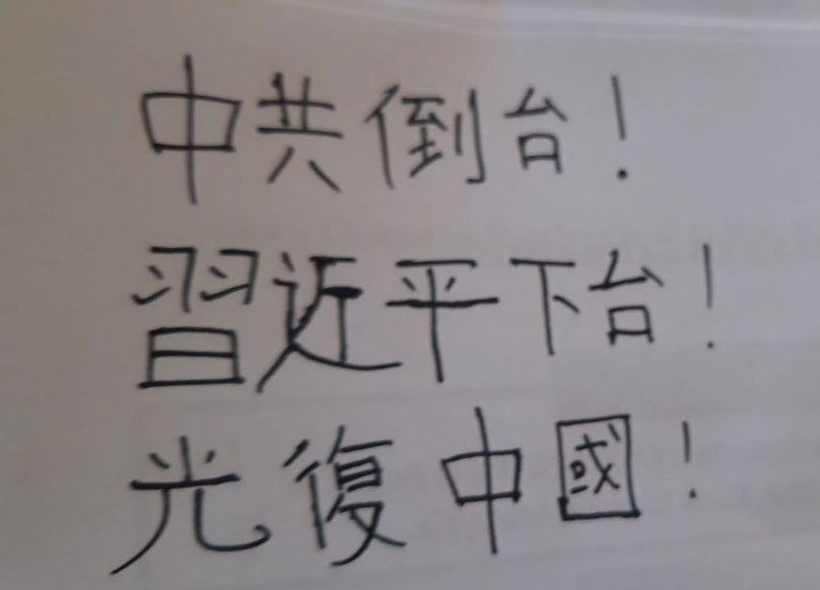 中共倒台！
習近平下台！
光復中國！